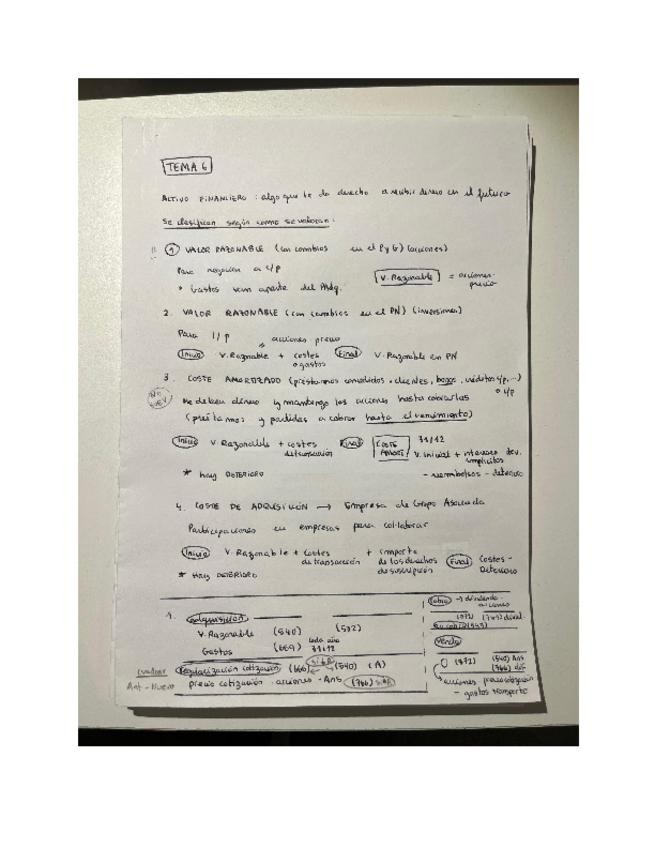 TEMA 6
ACTIVO FINANCIERO : algo que te da derecho a recibir dinero en el futuro
Se clasifican según como se valoran :
!! 1 VALOR RAZONABLE (con cambios en el PyG) (acciones)
Para negociar a c/p
V. Razonable = acciones · precio
* Gastos van aparte del PAdq.
2. VALOR RAZONABLE (con cambios en el PN) (inversiones)
Para l/p
acciones precio
Inicio V. Razonable + costes o gastos Final V. Razonable en PN
3. COSTE AMORTIZADO (préstamos concedidos, clientes, bonos, créditos c/p, ...) o l/p
Me deben dinero y mantengo las acciones hasta cobrarlas
(préstamos y partidas a cobrar hasta el vencimiento)
Inicio V. Razonable + costes de transacción Final COSTE AMORT 31/12
V. inicial + intereses dev. implícitos
- reembolsos - deterioro
* Hay DETERIORO
4. COSTE DE ADQUISICIÓN → Empresa de Grupo Asociada
Participaciones en empresas para collaborar
Inicio V. Razonable + costes de transacción + importe de los derechos de suscripción Final Costes - Deterioro
* HAY DETERIORO
1. adquisición
V. Razonable (540) (572)
Gastos (669) cada año 31/12
Regularización cotización (666) (540) (A)
precio cotización · acciones - Ans (766)
Ant - Nuevo
Cobro → dividendo · acciones
Venta
(572) (540) Ans
(766) dif
acciones · precio cotización
- gastos transporte